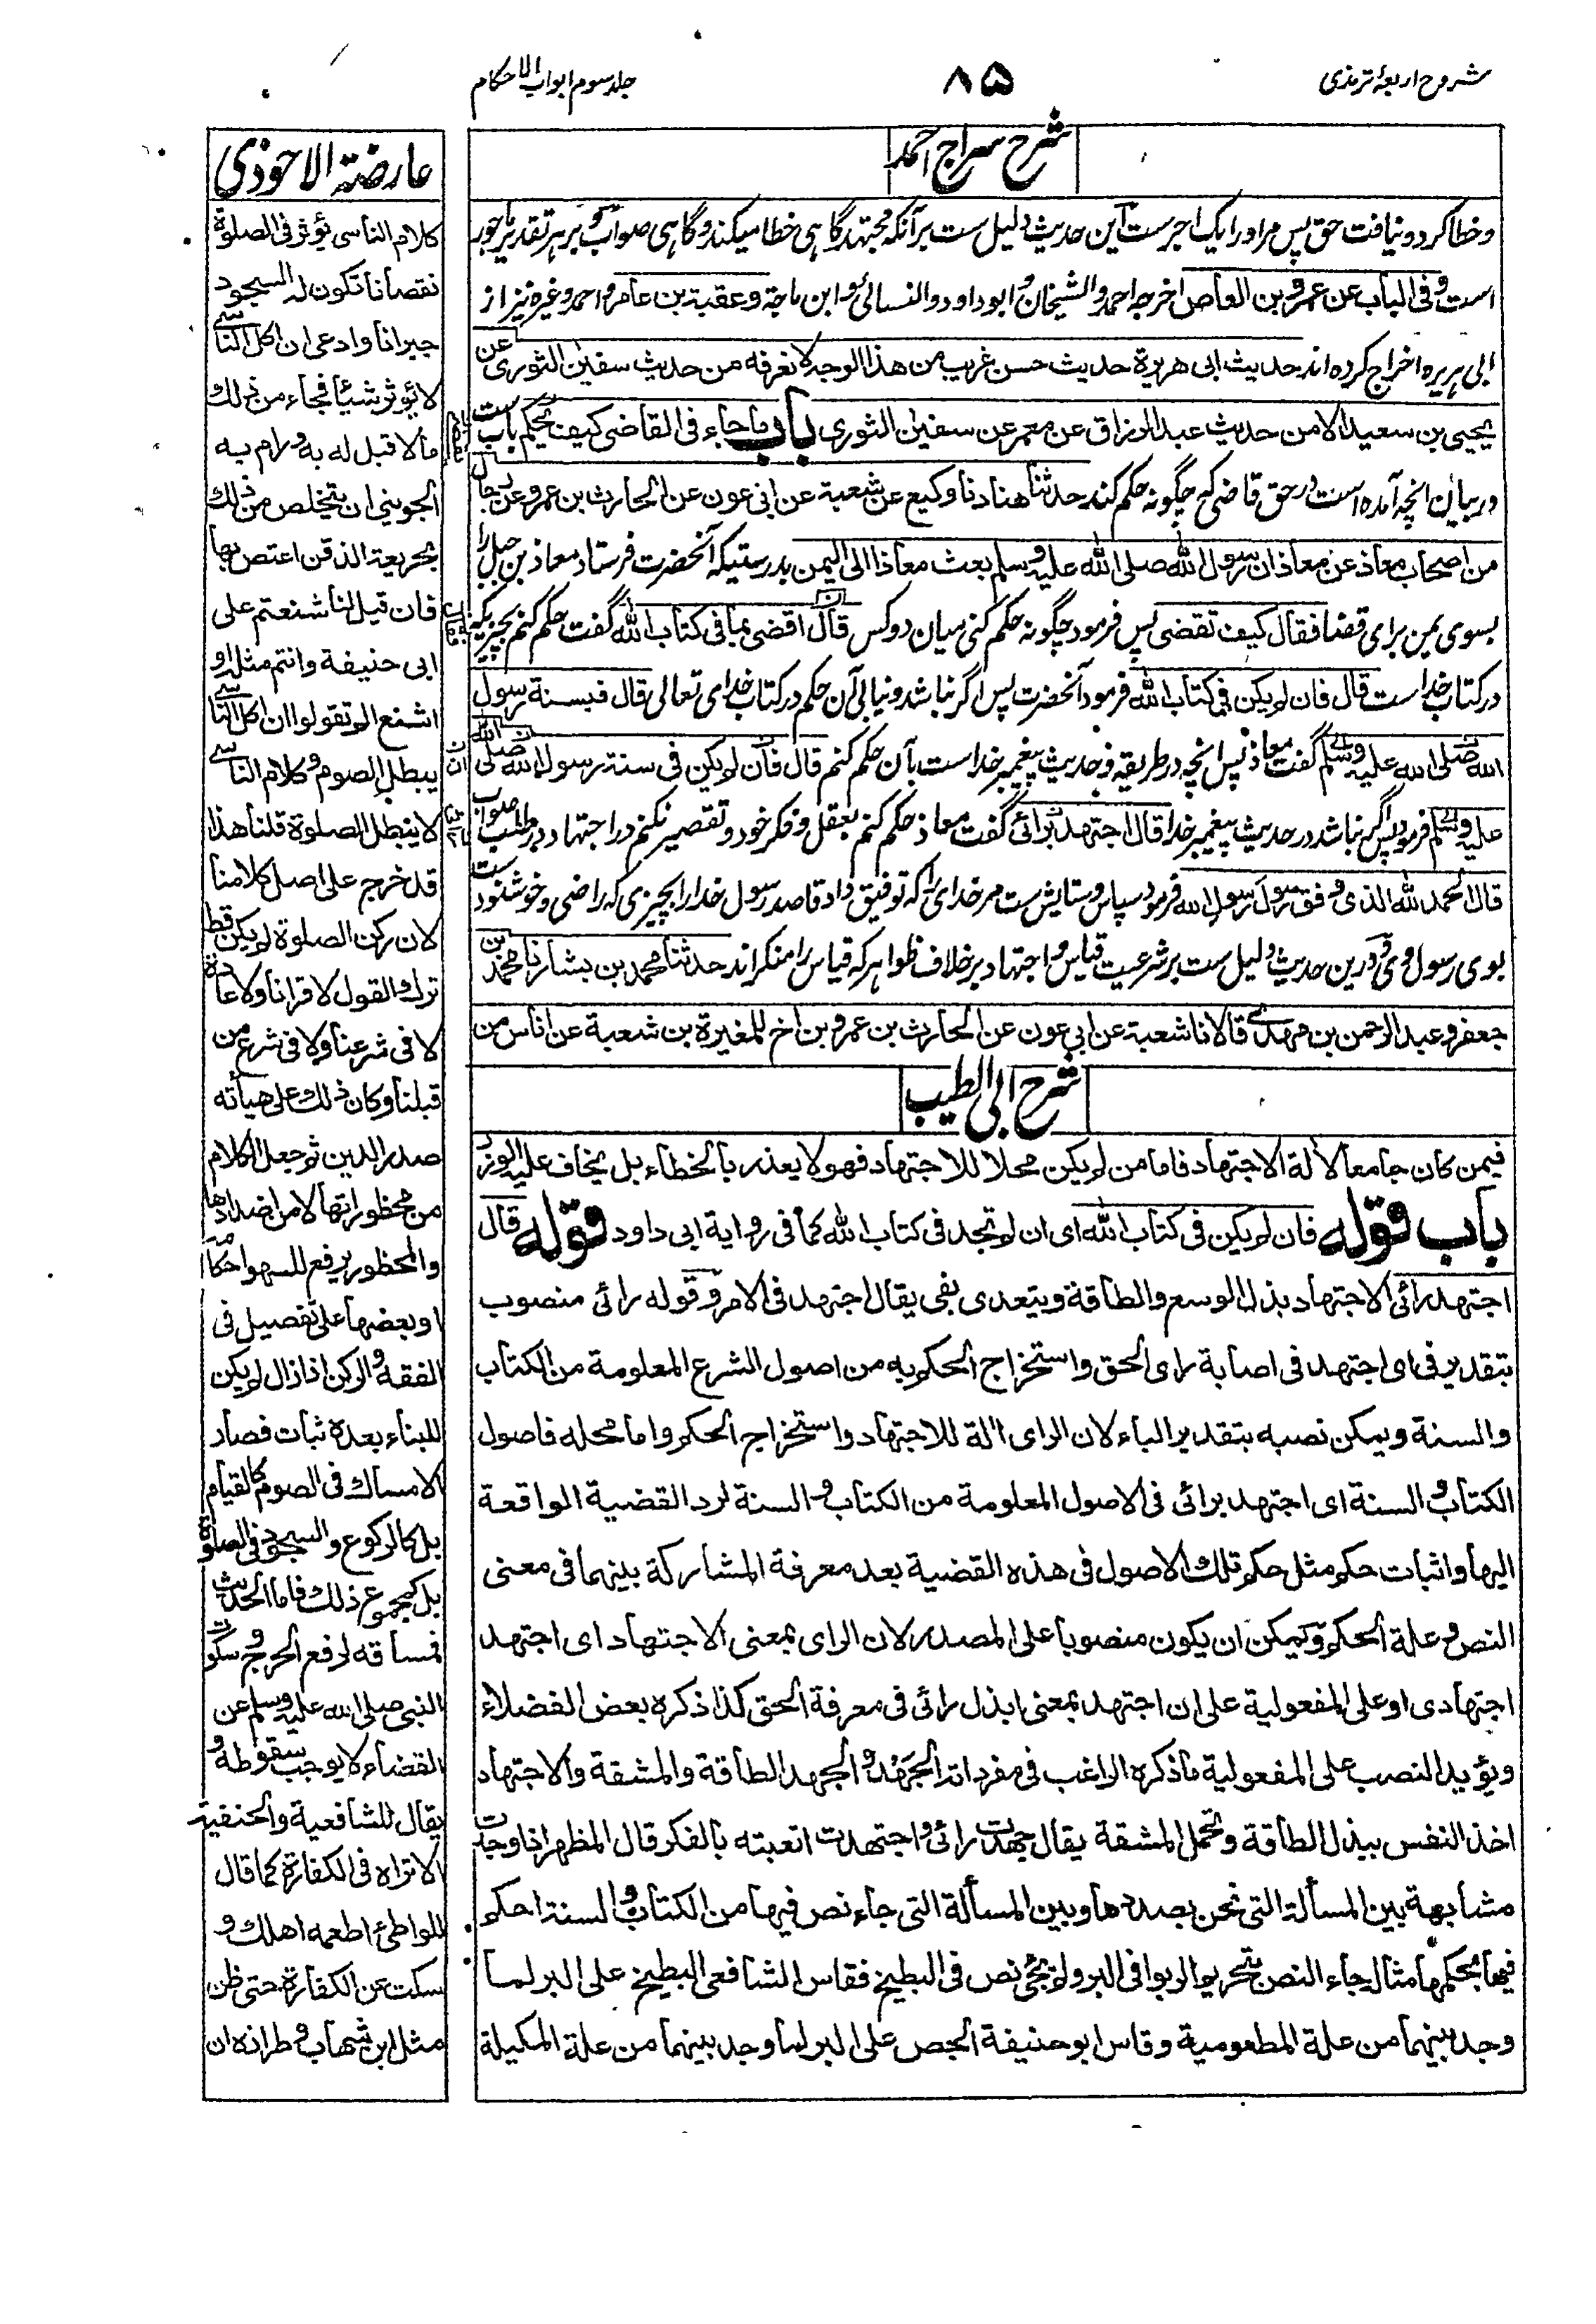 شروح اربعهٔ ترمذی
۸۵
جلد سوم ابواب الاحکام
شرح سراج احمد
وخطا کرد و نیافت حق پس مر او را یک اجر ست این حدیث دلیل ست بر آنکه مجتهد گاهی خطا میکند و گاهی صواب و بر هر تقدیر ماجور
است وفی الباب عن عمرو بن العاص اخرجه احمد والشیخان وابو داود والنسائی وابن ماجة وعقبة بن عامر واحمد وغیره نیز از
ابی هریره اخراج کرده اند حدیث ابی هریرة حدیث حسن غریب من هذا الوجه لا نعرفه من حدیث سفین الثوری عن
یحیی بن سعید الا من حدیث عبد الرزاق عن معمر عن سفین الثوری باب ما جاء فی القاضی کیف یحکم باب ست
در بیان انچه آمده است در حق قاضی که چگونه حکم کند حدثنا هناد نا وکیع عن شعبة عن ابی عون عن الحارث بن عمرو عن رجال
من اصحاب معاذ عن معاذ ان رسول الله صلی الله علیه وسلم بعث معاذا الی الیمن بدرستیکه آنحضرت فرستاد معاذ بن جبل را
بسوی یمن برای قضا فقال کیف تقضی پس فرمود چگونه حکم کنی میان دو کس قال اقضی بما فی کتاب الله گفت حکم کنم بچیزیکه
در کتاب خدا ست قال فان لم یکن فی کتاب الله فرمود آنحضرت پس اگر نباشد و نیابی آن حکم در کتاب خدای تعالی قال فبسنة رسول
الله صلی الله علیه وسلم گفت معاذ پس انچه در طریقه و حدیث پیغمبر خدا ست بآن حکم کنم قال فان لم یکن فی سنة رسول الله صلی الله
علیه وسلم فرمود پس اگر نباشد در حدیث پیغمبر خدا قال اجتهد برائی گفت معاذ حکم کنم بعقل و فکر خود و تقصیر نکنم در اجتهاد در طلب صواب
قال الحمد لله الذی وفق رسول رسول الله فرمود سپاس و ستایش ست مر خدای را که توفیق داد قاصد رسول خدا را بچیزی که راضی و خوشنود ست
بوی رسول وی و درین حدیث دلیل ست بر شرعیت قیاس و اجتهاد بر خلاف ظواهر که قیاس را منکر اند حدثنا محمد بن بشار نا محمد بن
جعفر وعبد الرحمن بن مهدی قالا نا شعبة عن ابی عون عن الحارث بن عمرو بن اخ للمغیرة بن شعبة عن اناس من
شرح ابی الطیب
فیمن کان جامعا لألة الاجتهاد فاما من لم یکن محلا للاجتهاد فهو لا یعذر بالخطاء بل یخاف علیه الوزر
باب قوله فان لم یکن فی کتاب الله ای ان لم تجد فی کتاب الله کما فی روایة ابی داود قوله قال
اجتهد رائی الاجتهاد بذل الوسع والطاقة ویتعدی بفی یقال اجتهد فی الامر وقوله رائی منصوب
بتقدیر فی ای اجتهد فی اصابة رای الحق واستخراج الحکم به من اصول الشرع المعلومة من الکتاب
والسنة ویمکن نصبه بتقدیر الباء لان الرای الة للاجتهاد واستخراج الحکم واما محله فاصول
الکتاب والسنة ای اجتهد برائی فی الاصول المعلومة من الکتاب والسنة لرد القضیة الواقعة
الیها واثبات حکم مثل حکم تلك الاصول فی هذه القضیة بعد معرفة المشارکة بینهما فی معنی
النص وعلة الحکم ویمکن ان یکون منصوبا علی المصدر لان الرای بمعنی الاجتهاد ای اجتهد
اجتهادی او علی المفعولیة علی ان اجتهد بمعنی ابذل رائی فی معرفة الحق کذا ذکره بعض الفضلاء
ویؤید النصب علی المفعولیة ما ذکره الراغب فی مفرداته الجَهْد والجهد الطاقة والمشقة والاجتهاد
اخذ النفس ببذل الطاقة وتحمل المشقة یقال جهدت رائی واجتهدت اتعبته بالفکر قال المظهر اذا وجدت
مشابهة بین المسألة التی نحن بصددها وبین المسألة التی جاء نص فیها من الکتاب والسنة احکم
فیها بحکمها مثال جاء النص بتحریم الربوا فی البر ولم یجئ نص فی البطیخ فقاس الشافعی البطیخ علی البر لما
وجد بینهما من علة المطعومیة وقاس ابو حنیفة الجص علی البر لما وجد بینهما من علة المکیلة
عارضة الاحوذی
کلام الناسی یؤثر فی الصلوة
نقصانا تکون له السجود
جبرانا وادعی ان اکل الناسی
لا یؤثر شیئا فجاء من ذلك
ما لا قبل له به ورام به
الجوینی ان یتخلص من ذلك
بجریعة الذقن اعتص بها
فان قیل لنا شنعتم علی
ابی حنیفة وانتم مثله او
اشنع الم تقولوا ان اکل الناسی
یبطل الصوم وکلام الناسی
لا یبطل الصلوة قلنا هذا
قد خرج علی اصل کلامنا
لان رکن الصلوة لم یکن قط
ترك القول لا قرانا ولا عادة
لا فی شرعنا ولا فی شرع من
قبلنا وکان ذلك علی هیأته
صدر الدین ثم جعل الکلام
من محظوراتها لا من اضدادها
والمحظور یرفع للسهو احکاما
او بعضها علی تفصیل فی
الفقه والرکن اذا زال لم یکن
للبناء بعده ثبات فصار
الامساك فی الصوم کالقیام
بل کالرکوع والسجود فی الصلوة
بل کمجموع ذلك فاما الحدیث
فمساقه لرفع الحرج وسکوت
النبی صلی الله علیه وسلم عن
القضاء لا یوجب سقوطه و
یقال للشافعیة والحنفیة
الا تراه فی الکفارة کما قال
للواطئ اطعمه اهلك و
سکت عن الکفارة حتی ظن
مثل ابن شهاب وطرازه ان